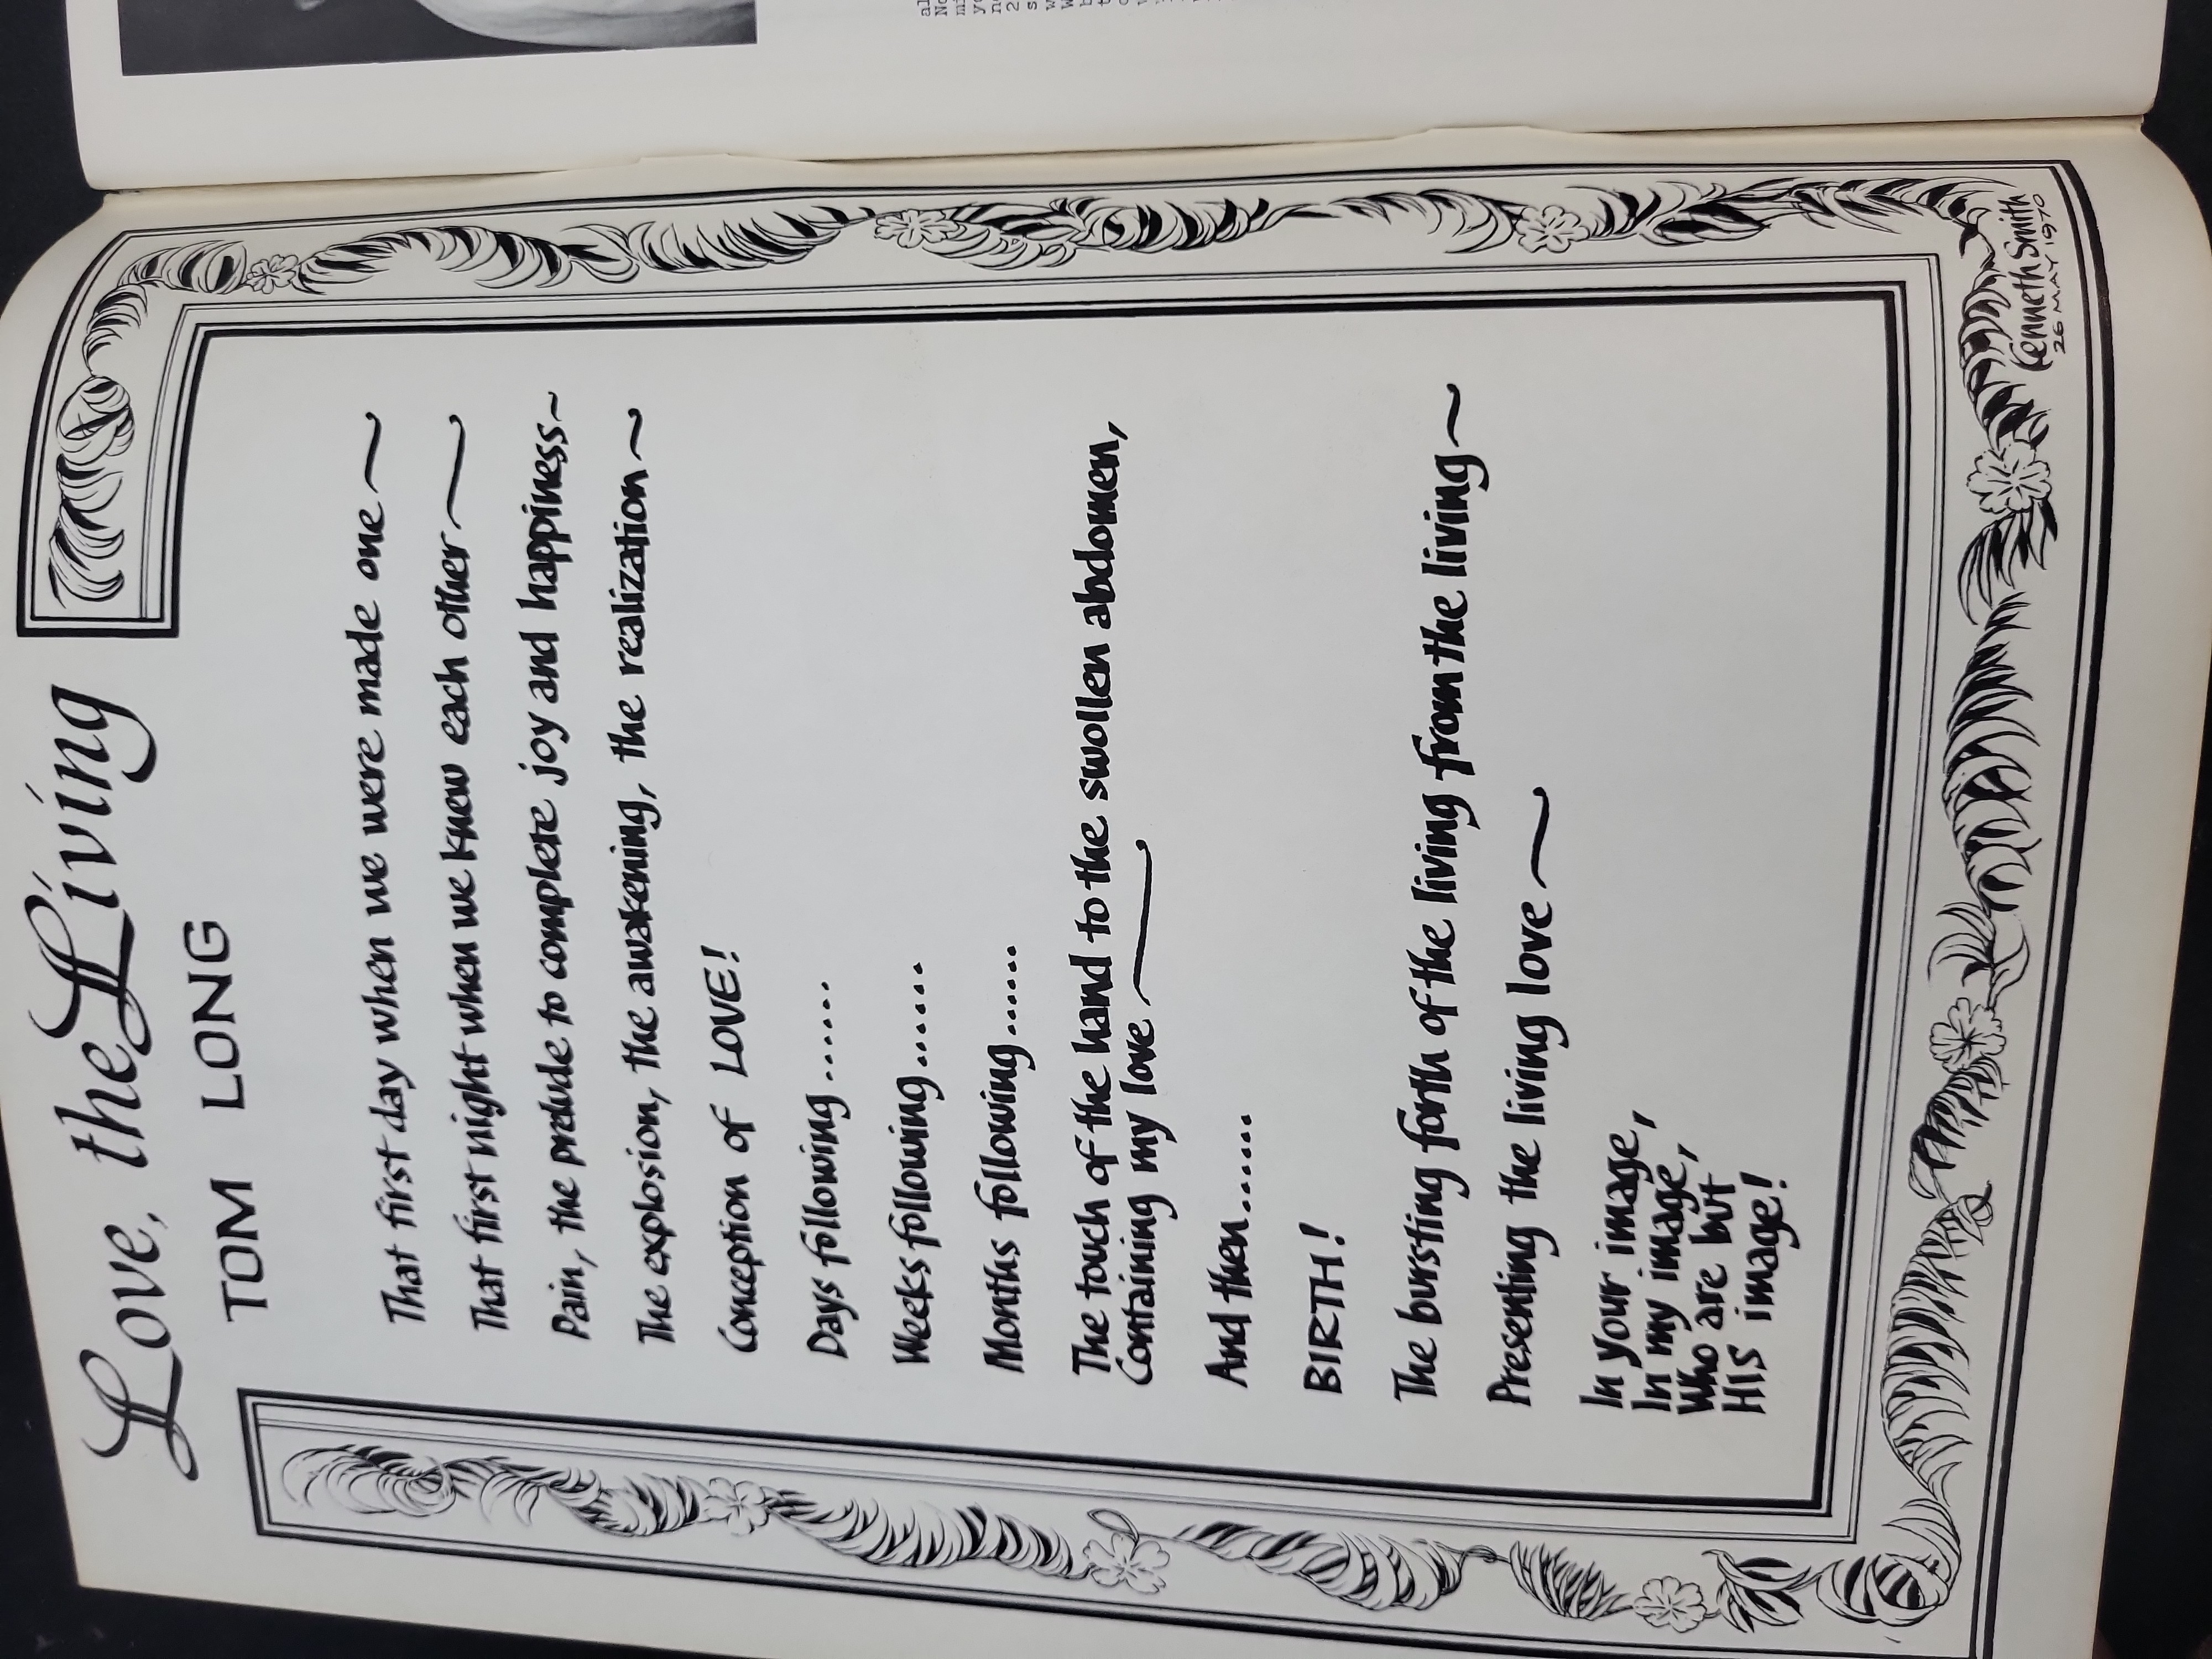 Love, the Living
TOM LONG
That first day when we were made one~
That first night when we knew each other~
Pain, the prelude to complete joy and happiness~
The explosion, the awakening, the realization~
Conception of LOVE!
Days following.......
Weeks following.......
Months following......
The touch of the hand to the swollen abdomen,
Containing my love~
And then.......
BIRTH!
The bursting forth of the living from the living~
Presenting the living love~
In your image,
In my image,
Who are but
HIS image!
Kenneth Smith
26 MAY 1970